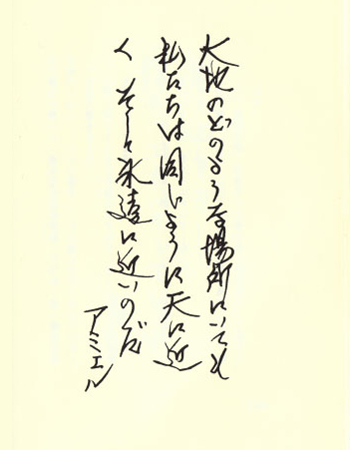 大地のどのような場所にいても
私たちは同じように天に近
く そして永遠に近いのだ
アミエル